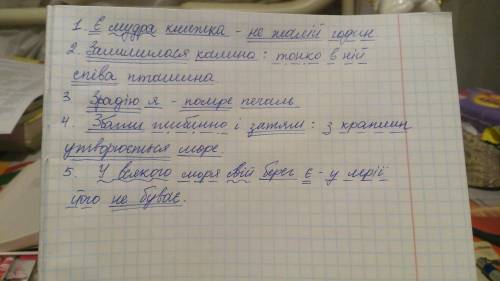 1. Є мудра книжка - не жалій годин
2. Замилилася калина: тонко в ній
співа пташина
3. Зрадію я - помре печаль
4. Збагни глибінно і затям: з краплин
утворюється море
5. У всякого моря свій берег є - у мрії
його не буває.